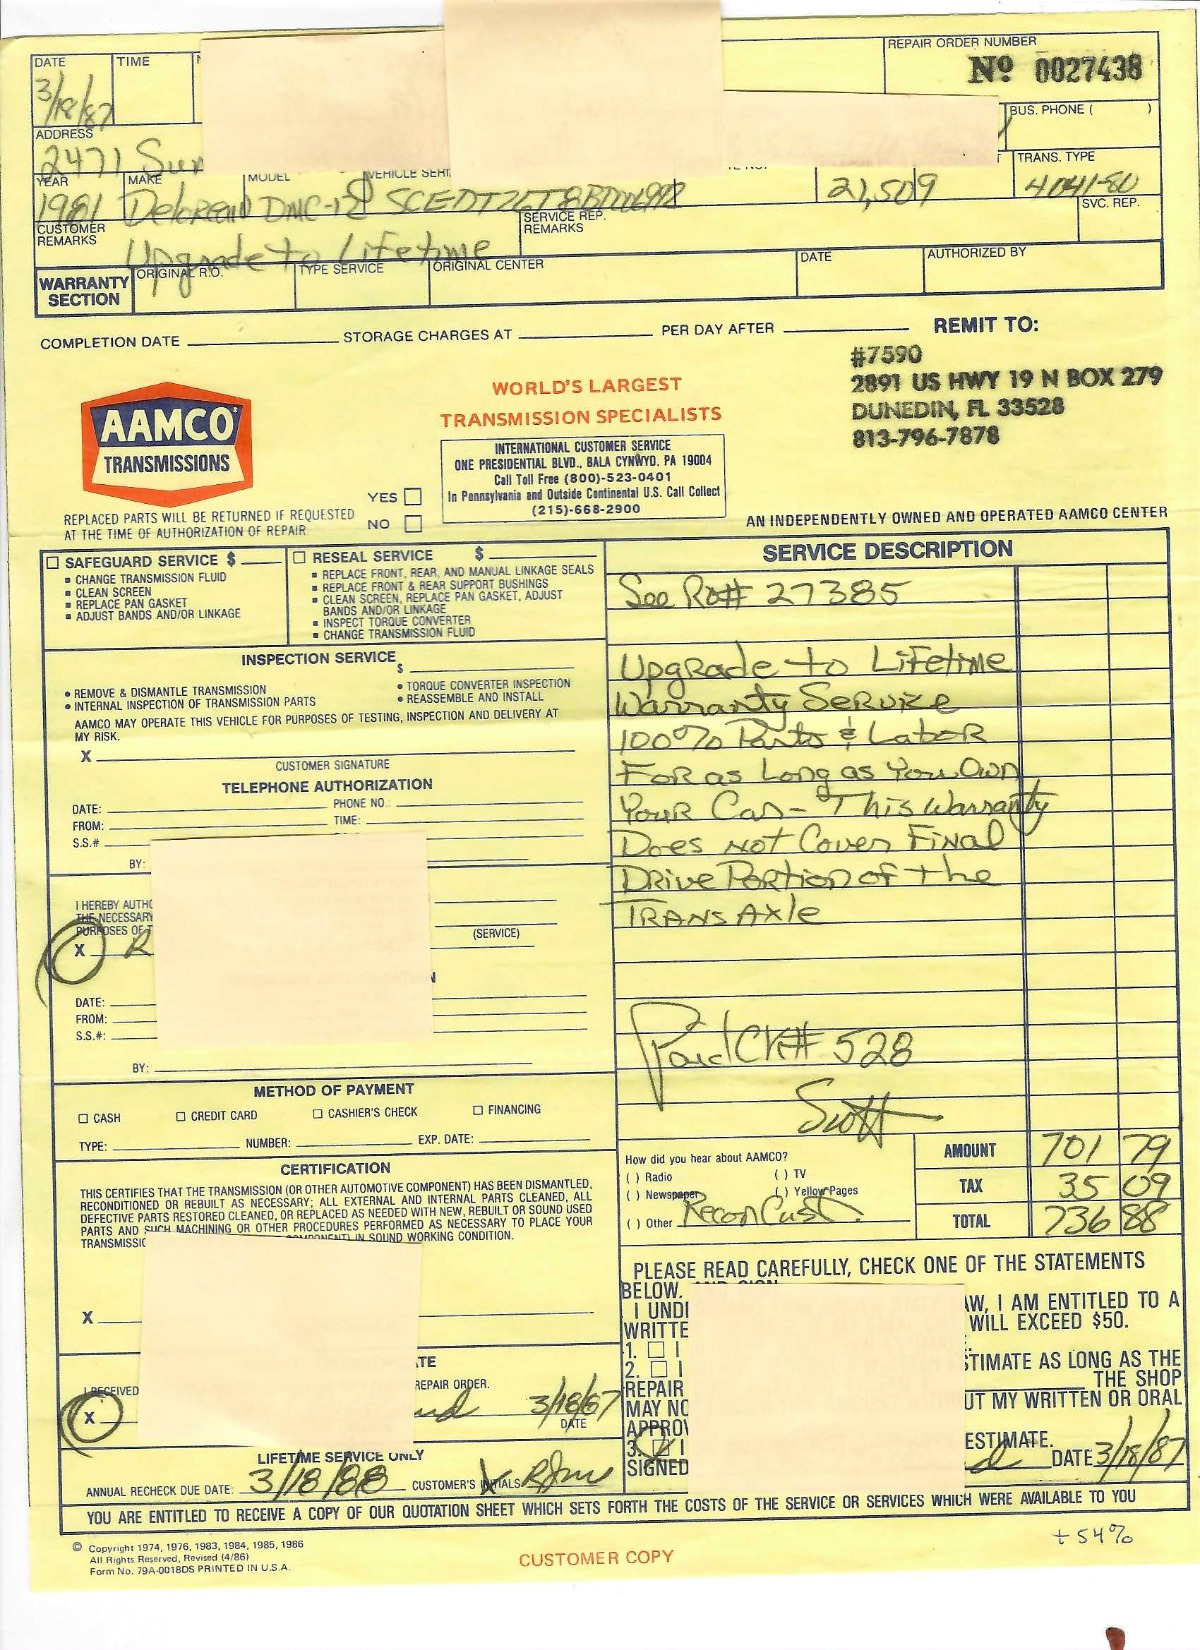 DATE
TIME
REPAIR ORDER NUMBER
Nº 0027438
3/18/87
BUS. PHONE ( )
ADDRESS
2471 Sun
YEAR MAKE MODEL VEHICLE SERI TRANS. TYPE
1981 Delorean DMC-12 21,509 4041-80
CUSTOMER REMARKS
SERVICE REP. REMARKS
SVC. REP.
Upgrade to Lifetime
WARRANTY SECTION
ORIGINAL R.O. TYPE SERVICE ORIGINAL CENTER DATE AUTHORIZED BY
COMPLETION DATE STORAGE CHARGES AT PER DAY AFTER REMIT TO:
#7590
2891 US HWY 19 N BOX 279
DUNEDIN, FL 33528
813-796-7878
AAMCO
TRANSMISSIONS
WORLD'S LARGEST
TRANSMISSION SPECIALISTS
INTERNATIONAL CUSTOMER SERVICE
ONE PRESIDENTIAL BLVD., BALA CYNWYD, PA 19004
Call Toll Free (800)-523-0401
In Pennsylvania and Outside Continental U.S. Call Collect
(215)-668-2900
REPLACED PARTS WILL BE RETURNED IF REQUESTED
AT THE TIME OF AUTHORIZATION OF REPAIR
YES
NO
AN INDEPENDENTLY OWNED AND OPERATED AAMCO CENTER
SAFEGUARD SERVICE $
CHANGE TRANSMISSION FLUID
CLEAN SCREEN
REPLACE PAN GASKET
ADJUST BANDS AND/OR LINKAGE
RESEAL SERVICE $
REPLACE FRONT, REAR, AND MANUAL LINKAGE SEALS
REPLACE FRONT & REAR SUPPORT BUSHINGS
CLEAN SCREEN, REPLACE PAN GASKET, ADJUST
BANDS AND/OR LINKAGE
INSPECT TORQUE CONVERTER
CHANGE TRANSMISSION FLUID
INSPECTION SERVICE $
REMOVE & DISMANTLE TRANSMISSION
INTERNAL INSPECTION OF TRANSMISSION PARTS
TORQUE CONVERTER INSPECTION
REASSEMBLE AND INSTALL
AAMCO MAY OPERATE THIS VEHICLE FOR PURPOSES OF TESTING, INSPECTION AND DELIVERY AT
MY RISK.
X
CUSTOMER SIGNATURE
TELEPHONE AUTHORIZATION
DATE: PHONE NO.
FROM: TIME:
S.S.#
BY:
I HEREBY AUTHO
THE NECESSARY
PURPOSES OF T
(SERVICE)
X R
DATE:
FROM:
S.S.#:
BY:
METHOD OF PAYMENT
CASH CREDIT CARD CASHIER'S CHECK FINANCING
TYPE: NUMBER: EXP. DATE:
CERTIFICATION
THIS CERTIFIES THAT THE TRANSMISSION (OR OTHER AUTOMOTIVE COMPONENT) HAS BEEN DISMANTLED,
RECONDITIONED OR REBUILT AS NECESSARY; ALL EXTERNAL AND INTERNAL PARTS CLEANED, ALL
DEFECTIVE PARTS RESTORED CLEANED, OR REPLACED AS NEEDED WITH NEW, REBUILT OR SOUND USED
PARTS AND SUCH MACHINING OR OTHER PROCEDURES PERFORMED AS NECESSARY TO PLACE YOUR
TRANSMISSIO COMPONENT) IN SOUND WORKING CONDITION.
X
TE
I RECEIVED REPAIR ORDER.
X 3/18/87
DATE
LIFETIME SERVICE ONLY
ANNUAL RECHECK DUE DATE: 3/18/88 CUSTOMER'S INITIALS
SERVICE DESCRIPTION
See Ro# 27385
Upgrade to Lifetime
Warranty Service
100% Parts & Labor
For as Long as You Own
Your Car- This Warranty
Does Not Cover Final
Drive Portion of the
TransAxle
Paid CK# 528
Scott
How did you hear about AAMCO?
( ) Radio ( ) TV
( ) Newspaper ( ) Yellow Pages
( ) Other Recon Cust.
AMOUNT 701 79
TAX 35 09
TOTAL 736 88
PLEASE READ CAREFULLY, CHECK ONE OF THE STATEMENTS
BELOW, AND SIGN
I UNDE AW, I AM ENTITLED TO A
WRITTE WILL EXCEED $50.
1. I
2. I STIMATE AS LONG AS THE
REPAIR THE SHOP
MAY NO UT MY WRITTEN OR ORAL
APPROV
3. I ESTIMATE.
SIGNED DATE 3/18/87
YOU ARE ENTITLED TO RECEIVE A COPY OF OUR QUOTATION SHEET WHICH SETS FORTH THE COSTS OF THE SERVICE OR SERVICES WHICH WERE AVAILABLE TO YOU
© Copyright 1974, 1976, 1983, 1984, 1985, 1986
All Rights Reserved, Revised (4/86)
Form No. 79A-0018DS PRINTED IN U.S.A.
CUSTOMER COPY
+54%